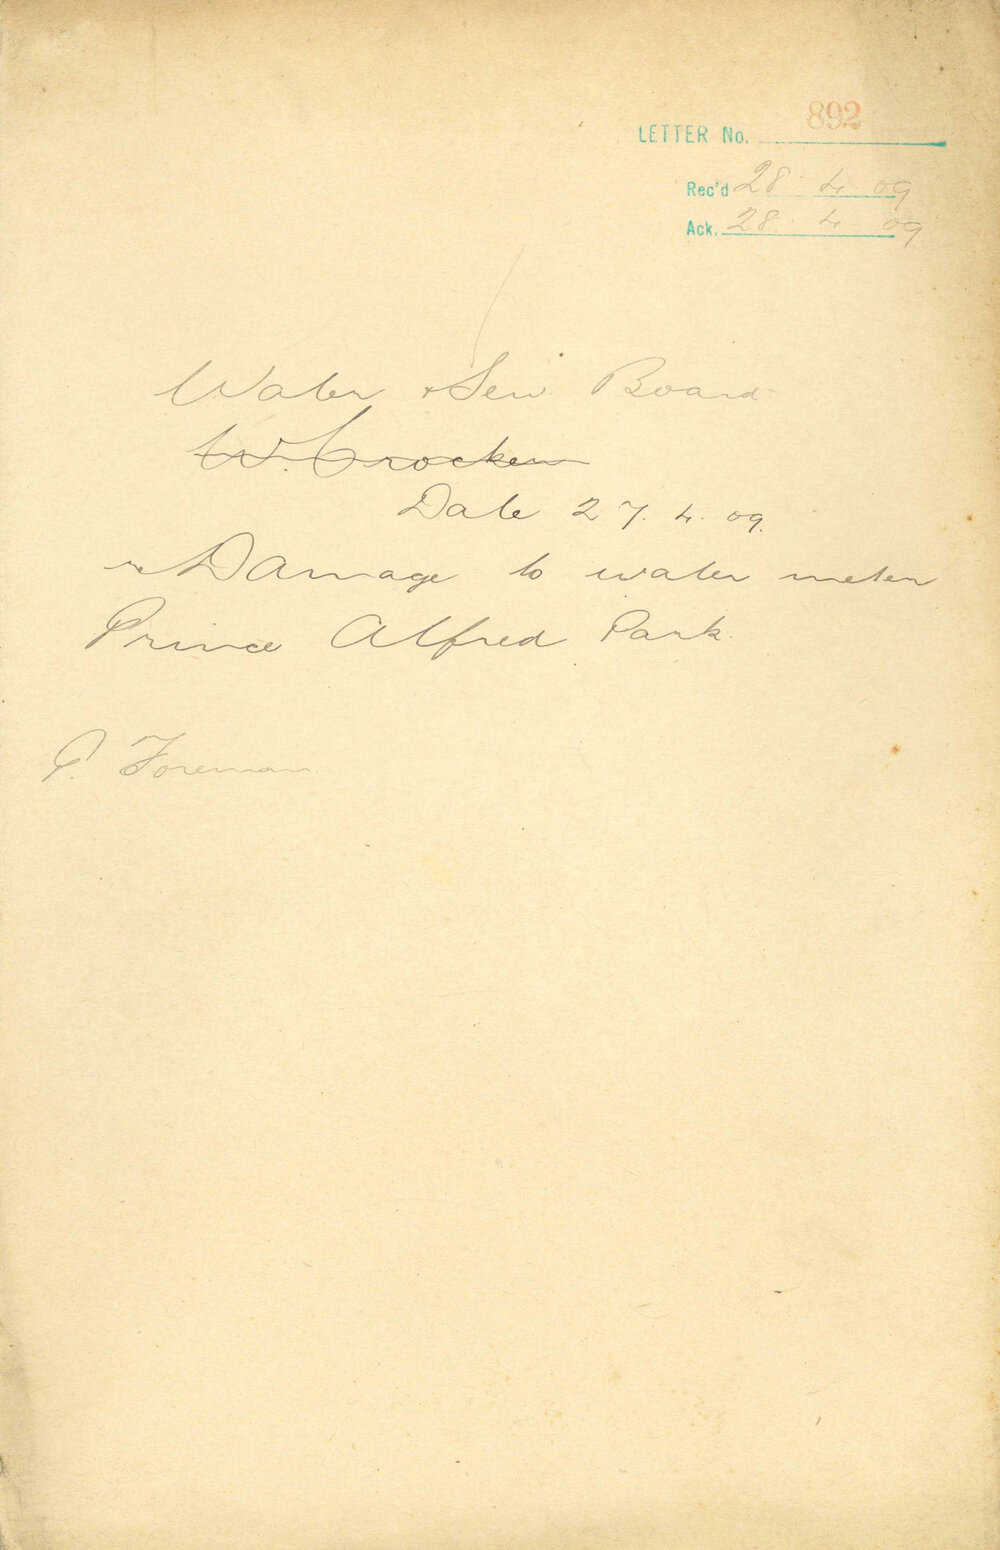 LETTER No. 892
Rec'd 28. 4. 09
Ack. 28. 4. 09
Water & Sew. Board
W. Crocker
Date 27. 4. 09.
re Damage to water meter
Prince Alfred Park.
P. Foreman